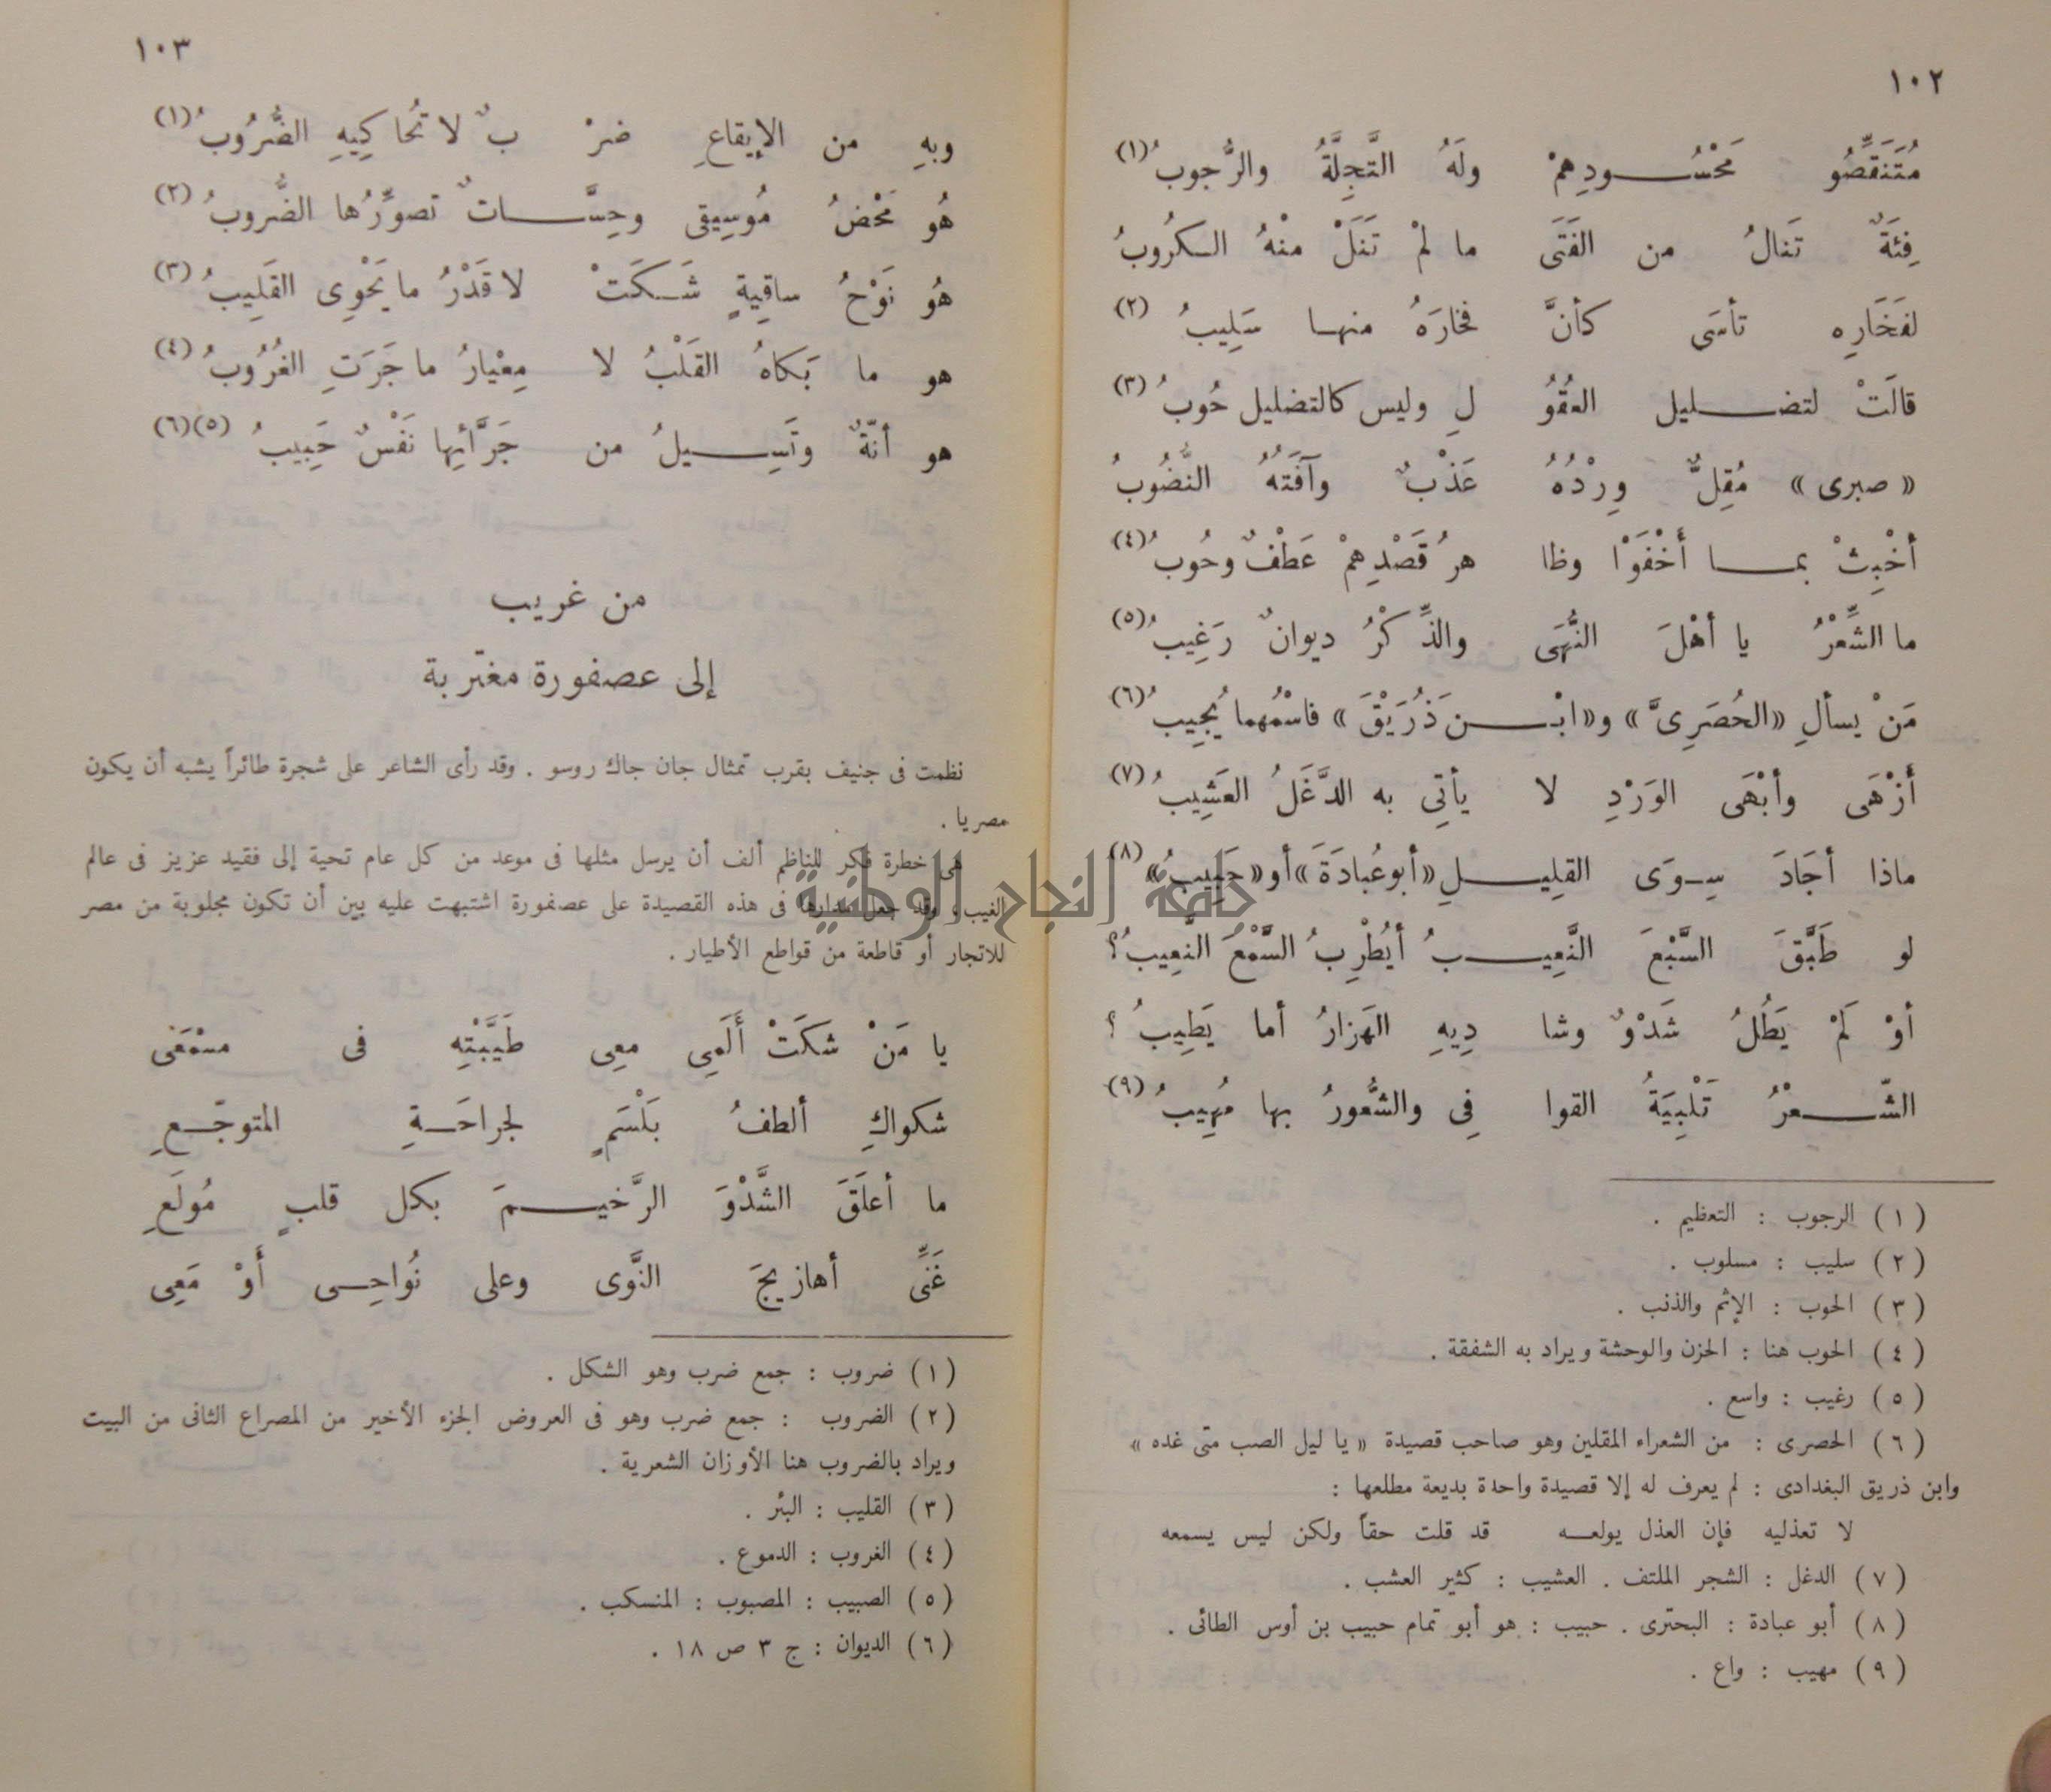 ١٠٢
مُتَنَقِّصُو مَحْسُودِهِمْ ولَهُ التَّجِلَّةُ والرُّجوبُ (١)
فِئَةٌ تَنالُ من الفَتَى ما لمْ تَنَلْ منْهُ الكرُوبُ
لفَخَارِه تأسَى كأنَّ فخارَهُ منها سَلِيبُ (٢)
قالَتْ لتضليل العقُو لِ وليس كالتضليل حُوبُ (٣)
« صبرى » مُقِلٌّ وِرْدُهُ عَذْبٌ وآفَتَهُ النُّضُوبُ
أخْبِثْ بما أَخْفَوْا وظا هرُ قَصْدِهِمْ عَطْفٌ وحُوبُ (٤)
ما الشِّعْرُ يا أهْلَ النُّهَى والذِّكْرُ ديوانٌ رَغِيبُ (٥)
مَنْ يسألِ «الحُصَرِىَّ» و«ابْنَ ذُرَيْقَ» فاسْمُهما يُجِيبُ (٦)
أَزْهَى وأبْهَى الوَرْدِ لا يأتِى به الدَّغَلُ العَشِيبُ (٧)
ماذا أجَادَ سِوَى القلِيلِ «أبو عُبادَةَ» أو «حَبِيبُ» (٨)
لو طَبَّقَ السَّبْعَ النَّعِيبُ أيُطْرِبُ السَّمْعَ النَّعِيبُ؟
أوْ لَمْ يَطُلُ شَدْوٌ وشا دِيهِ الهَزارُ أما يَطِيبُ ؟
الشّعْرُ تَلْبِيَةُ القوا فِى والشُّعورُ بها مُهِيبُ (٩)
(١) الرجوب : التعظيم .
(٢) سليب : مسلوب .
(٣) الحوب : الإثم والذنب .
(٤) الحوب هنا : الحزن والوحشة ويراد به الشفقة .
(٥) رغيب : واسع .
(٦) الحصرى : من الشعراء المقلين وهو صاحب قصيدة « يا ليل الصب متى غده »
وابن ذريق البغدادى : لم يعرف له إلا قصيدة واحدة بديعة مطلعها :
لا تعذليه فإن العذل يولعه قد قلت حقاً ولكن ليس يسمعه
(٧) الدغل : الشجر الملتف . العشيب : كثير العشب .
(٨) أبو عبادة : البحترى . حبيب : هو أبو تمام حبيب بن أوس الطائى .
(٩) مهيب : واع .
١٠٣
وبهِ من الإيقاعِ ضرْ بٌ لا تُحاكِيهِ الضُّرُوبُ (١)
هُو مَحْضُ مُوسِيقى وحِسَّاتٌ تصوِّرُها الضُّروبُ (٢)
هُو نَوْحُ ساقِيةٍ شَكَتْ لا قَدْرُ ما يَحْوِى القَلِيبُ (٣)
هو ما بَكاهُ القَلْبُ لا مِعْيارُ ما جَرَتِ الغُرُوبُ (٤)
هو أنّةٌ وتَسِيلُ من جَرَّائِها نَفْسٌ حَبِيبُ (٥)(٦)
من غريب
إلى عصفورة مغتربة
نظمت فى جنيف بقرب تمثال جان جاك روسو . وقد رأى الشاعر على شجرة طائراً يشبه أن يكون
مصريا .
هى خطرة فكر للناظم ألف أن يرسل مثلها فى موعد من كل عام تحية إلى فقيد عزيز فى عالم
الغيب ، وقد جعل مدارها فى هذه القصيدة على عصفورة اشتبهت عليه بين أن تكون مجلوبة من مصر
للاتجار أو قاطعة من قواطع الأطيار .
جامعة النجاح الوطنية
يا مَنْ شكَتْ أَلَمِى معِى طَيَّبْتِهِ فى مسْمَعَى
شكواكِ ألطفُ بَلْسَمٍ لجراحَةِ المتوجّعِ
ما أعلَقَ الشَّدْوَ الرَّخيمَ بكل قلبٍ مُولَعِ
غَنِّى أهازيجَ النَّوى وعلى نُواحِى أَوْ مَعِى
(١) ضروب : جمع ضرب وهو الشكل .
(٢) الضروب : جمع ضرب وهو فى العروض الجزء الأخير من المصراع الثانى من البيت
ويراد بالضروب هنا الأوزان الشعرية .
(٣) القليب : البئر .
(٤) الغروب : الدموع .
(٥) الصبيب : المصبوب : المنسكب .
(٦) الديوان : ج ٣ ص ١٨ .